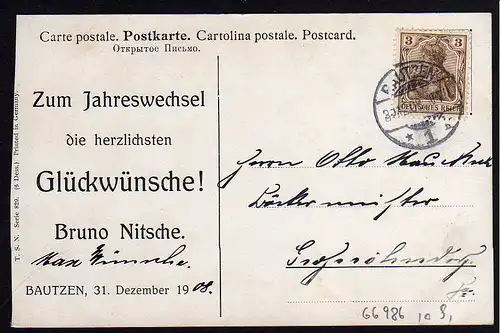 Carte postale. Postkarte. Cartolina postale. Postcard.
Открытое Письмо.
Zum Jahreswechsel
die herzlichsten
Glückwünsche!
Bruno Nitsche.
Max Wünsche.
BAUTZEN, 31. Dezember 1908.
T. S. N. Serie 829. (6 Dess.) Printed in Germany.
3 3
DEUTSCHES REICH
BAUTZEN
* 1
Herrn Otto
Bäckermeister
Großröhrsdorf
66986